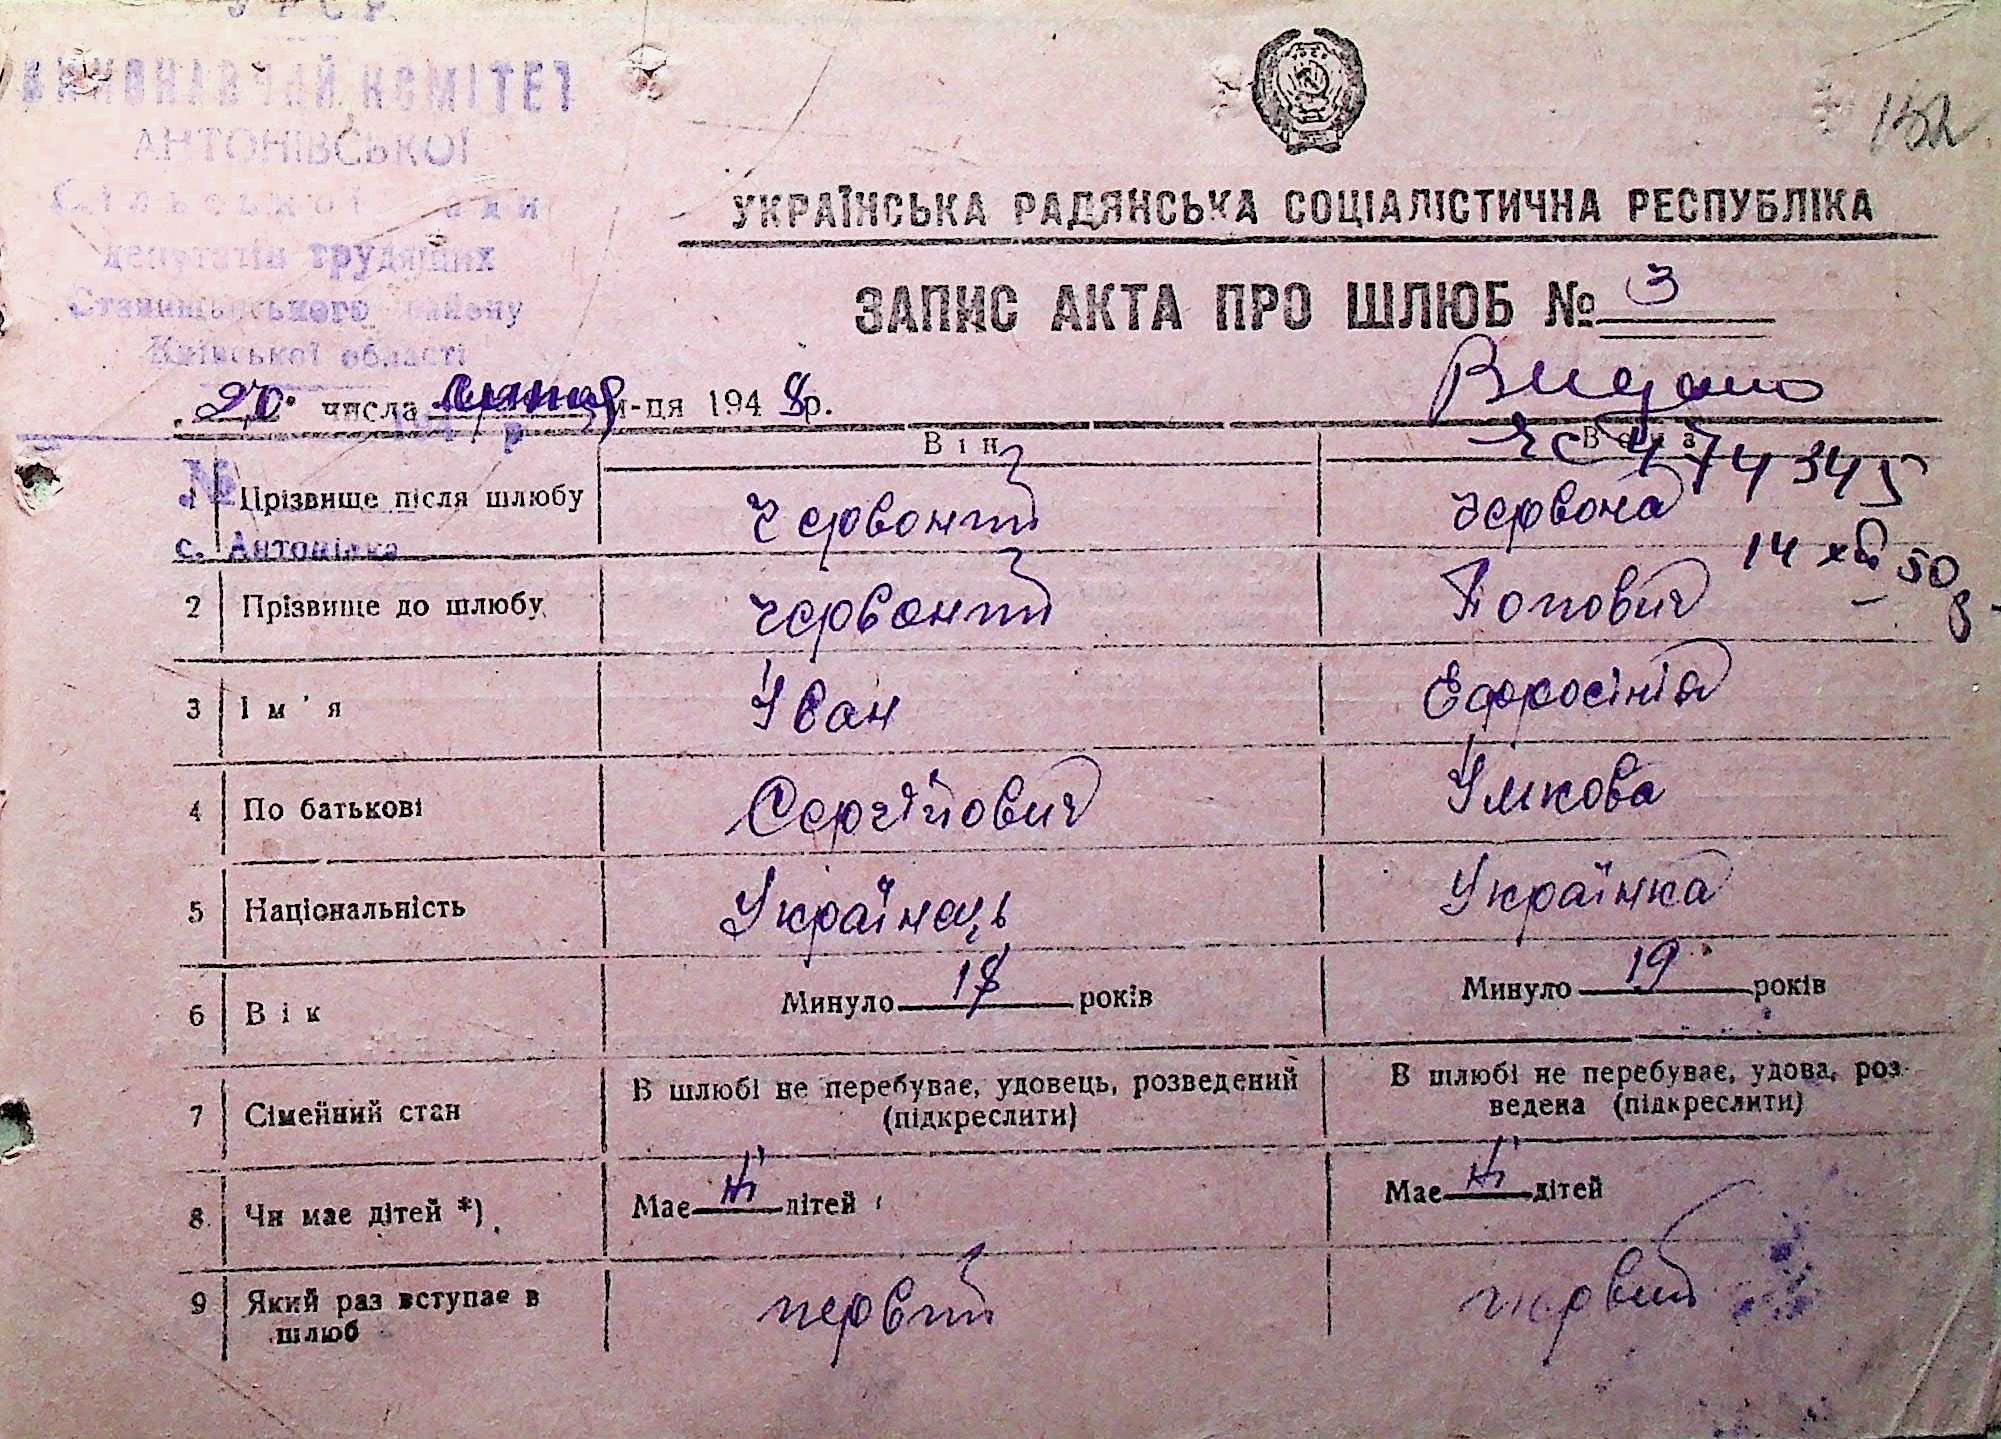 УРСР
ВИКОНАВЧИЙ КОМІТЕТ
АНТОНІВСЬКОЇ
Сільської Ради
депутатів трудящих
Ставищанського району
Київської області
194 р
№
с. Антонівка
152
УКРАЇНСЬКА РАДЯНСЬКА СОЦІАЛІСТИЧНА РЕСПУБЛІКА
ЗАПИС АКТА ПРО ШЛЮБ № 3
20 числа м-ця 1948 р.
Видано
Він Вона
474345
14 XII 50 р
1 Прізвище після шлюбу Червоний Червона
2 Прізвище до шлюбу Червоний Попович
3 Ім'я Іван Єфросінія
4 По батькові Сергійович
5 Національність Українець Українка
6 Вік Минуло 18 років Минуло 19 років
7 Сімейний стан В шлюбі не перебуває, удовець, розведений (підкреслити) В шлюбі не перебуває, удова, розведена (підкреслити)
8 Чи має дітей *) Має ні дітей Має ні дітей
9 Який раз вступає в шлюб первий первий